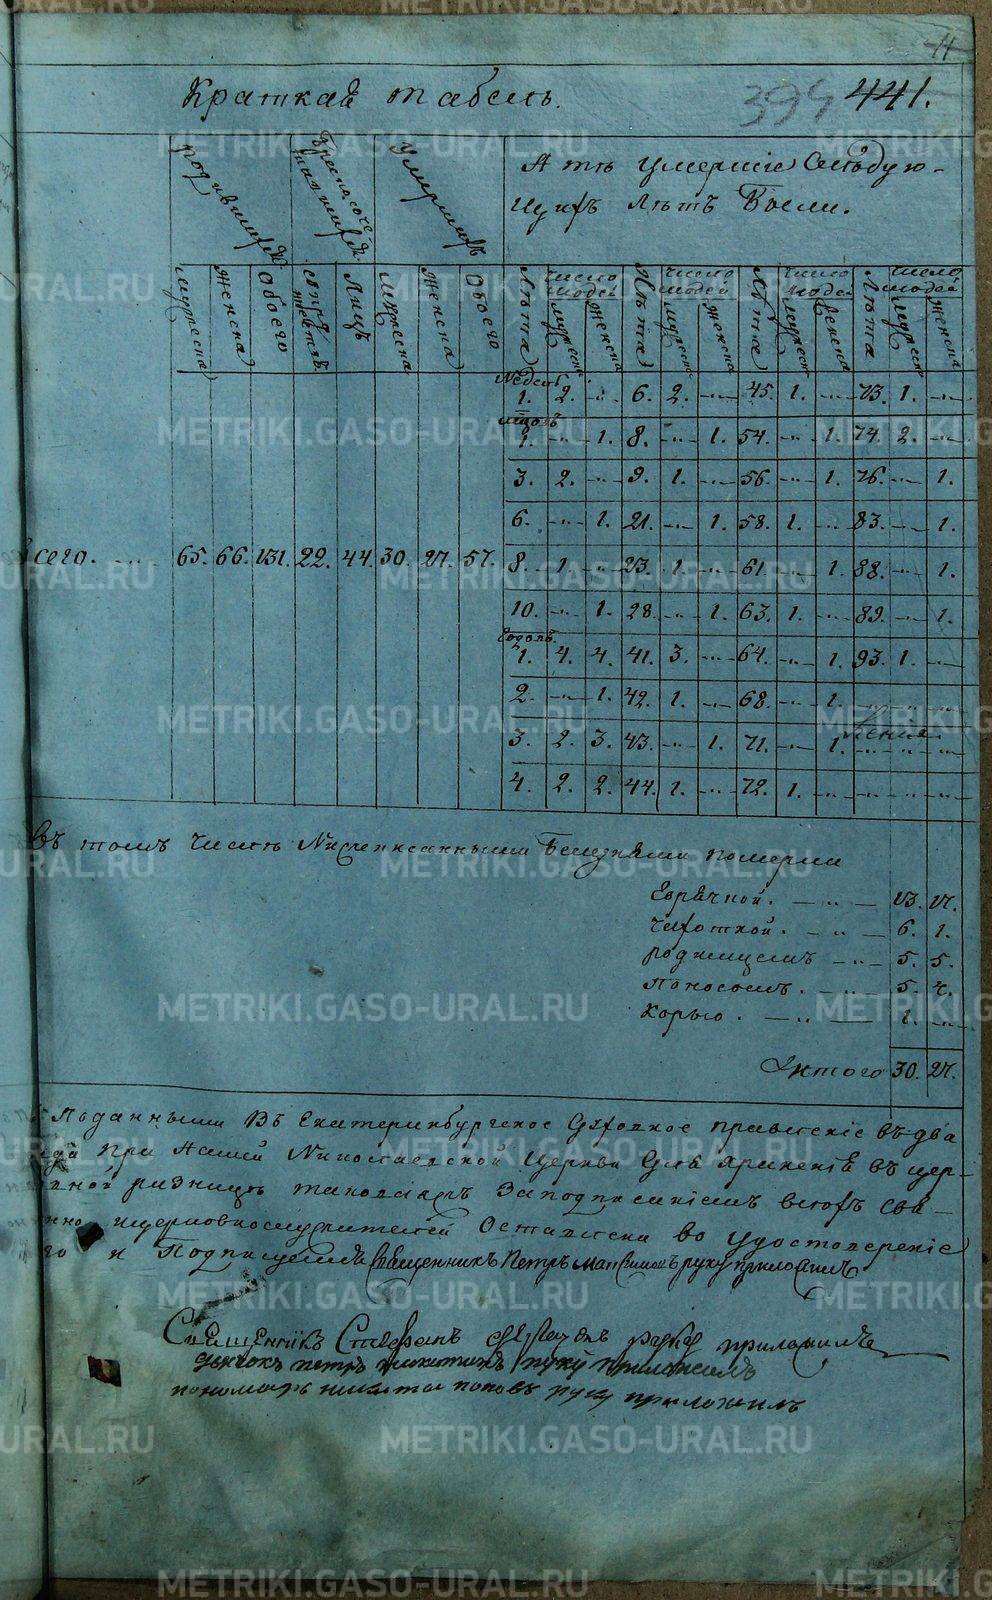 11
Краткая табель.
394 441.
родившихся
бракосоче-
тавшихся
умершихъ
А тѣ умершіе Слѣдую-
щихъ Лѣтъ Были.
мужеска Женска Обоего Лицъ мужеска Женска Обоего
Лѣта число людей Лѣта число людей Лѣта число людей Лѣта число людей
мужеска женска мужеска женска мужеска женска мужеска женска
Недель
1. 2. 6. 2. 45. 1. 73. 1.
1. 1. 8. 1. 54. 1. 74. 2.
3. 2. 9. 1. 56. 1. 76. 1.
6. 1. 21. 1. 58. 1. 83. 1.
Всего. 65. 66. 131. 22. 44. 30. 27. 57. 8. 1. 23. 1. 61. 1. 88. 1.
10. 1. 28. 1. 63. 1. 89. 1.
Годовъ.
1. 4. 4. 41. 3. 64. 1. 93. 1.
2. 1. 42. 1. 68. 1.
3. 2. 3. 43. 1. 71. 1.
4. 2. 2. 44. 1. 72. 1.
Въ томъ числѣ Нижеписанными Болезнями померли
Горячкой. 13. 17.
Чахоткой. 6. 1.
родимцемъ 5. 5.
Поносомъ. 5. 4.
Корью. 1.
Итого 30. 27.
Поданными Въ Екатеринбургское Духовное правленіе въ два
при Нашей Николаевской Церкви Для храненія въ цер-
ризницѣ таковаяжъ Заподписаніемъ всѣхъ свя-
церковнослужителей Оставлена во удостовереніе
го и Подписуемся Священникъ Петръ руку приложилъ
Священникъ Стефанъ руку приложилъ
дьячокъ петръ никитинъ руку приложилъ
пономарь никита поповъ руку приложилъ
METRIKI.GASO-URAL.RU